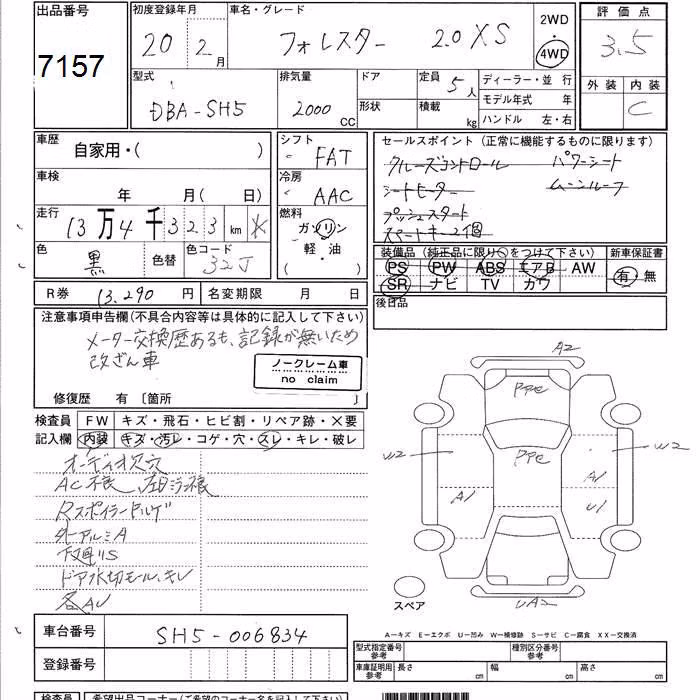 出品番号
7157
初度登録年月
20年 2月
車名・グレード
フォレスター 2.0 XS
2WD
4WD
評価点
3.5
外装 内装
C
型式
DBA-SH5
排気量
2000 CC
ドア
形状
定員
5人
積載 kg
ディーラー・並行
モデル年式 年
ハンドル 左・右
車歴
自家用・( )
車検
年 月( 日)
走行
13万4千323km
色
黒
色替
色コード
32J
シフト
FAT
冷房
AAC
燃料
ガソリン
軽・油
( )
セールスポイント (正常に機能するものに限ります)
クルーズコントロール パワーシート
シートヒーター ムーンルーフ
プッシュスタート
スペアキー2個
装備品 (純正品に限り○をつけて下さい)
PS PW ABS エアB AW
SR ナビ TV カワ
新車保証書
有・無
R券 13.290円
名変期限 月 日
後日品
注意事項申告欄(不具合内容等は具体的に記入して下さい)
メーター交換歴あるも、記録が無いため
改ざん車
ノークレーム車
no claim
修復歴 有 〔箇所 〕
検査員
記入欄
FW キズ・飛石・ヒビ割・リペア跡・×要
内装 キズ・汚レ・コゲ・穴・スレ・キレ・破レ
オーディオ欠穴
AC不良
下廻りS
ドア水切モール、キレ
各AU
A2
PPC
W2
PPC
A1
W2
A1
U1
UA2
スペア
A-キズ E-エクボ U-凹み W-補修跡 S-サビ C-腐食 XX-交換済
車台番号
SH5-006834
登録番号
型式指定番号
参考
種別区分番号
参考
車庫証明用
参考
長さ cm
幅 cm
高さ cm
検査員
希望出品コーナー(ご希望のコーナー名を記入して下さい)